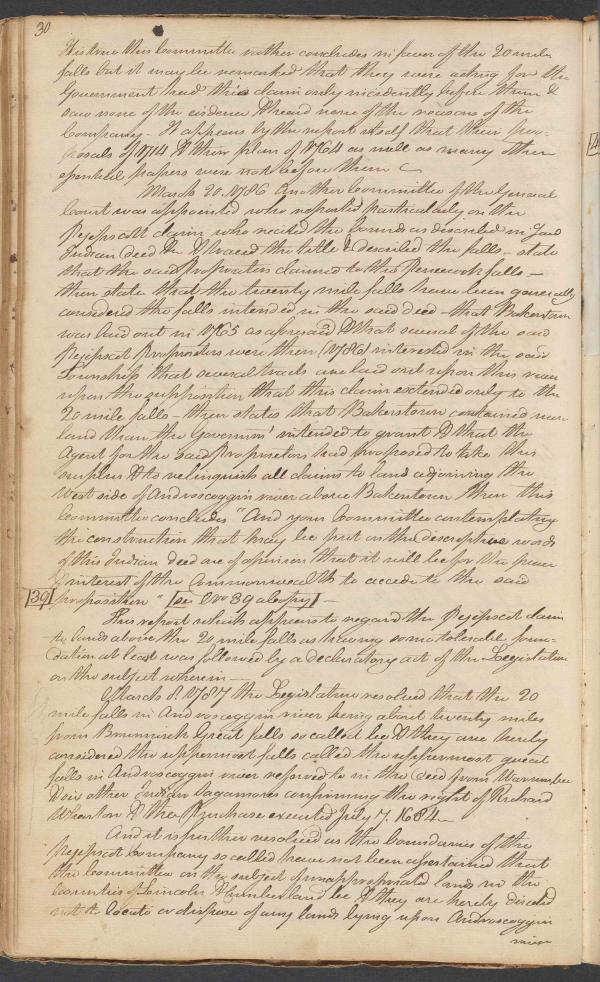 30
Tis true this Committee rather concludes in favor of the 20 mile
falls but it may be remarked that they were acting for the
Government had this claim only incidently before them &
saw none of the evidence & heard none of the reasons of the
Company - It appears by the report itself that their pro-
posals of 1714 & their plan of 1764 as well as many other
essential papers were not before them
March 20. 1786 Another Committee of the General
Court was appointed who reported particularly on the
Pejepscott claim who recited the bounds as described in
Indian deed & traced the title & described the falls - state
that the said Proprietors claimed to this falls -
then state that the twenty mile falls have been generally
considered the falls intended in the said deed - that Bakerstown
was laid out in 1765 as aforesaid & that several of the said
Pejepscot Proprietors were then (1786) interested in the said
Township that several tracts are laid out upon this river
upon the supposition that this claim extended only to the
20 mile falls - then states that Bakerstown contained more
land than the Governmt intended to grant & that the
Agent for the said Proprietors had proposed to take this
surplus & to relinquish all claims to land adjoining the
West side of Androscoggin river above Bakerstown then this
Committee concludes "And your Committee contemplating
the construction that may be put on the descriptive words
of this Indian deed are of opinion that it will be for the
interest of the Commonwealth to accede to the said
[39] proposition" [see No 39 ]
This report which appears to regard the Pejepscot claim
to lands above the 20 mile falls as having some tolerable foun-
dation at least was followed by a declaratory act of the Legislature
on the subject wherein -
March 8. 1787 the Legislature resolved that the 20
mile falls in Androscoggin river being about twenty miles
from Brunswick Great falls so called be & they are hereby
considered the uppermost falls called the uppermost great
falls in Androscoggin river referred to in the deed from Warumbee
& six other Indian Sagamores confirming the right of Richard
Wharton & the Purchase executed July 7. 1684 -
And it is further resolved as the boundaries of the
Pejepscot Company so called have not been ascertained that
the Committee on the subject of unappropriated lands in the
Counties of Lincoln & Cumberland be & they are hereby directed
not to locate or dispose of any lands lying upon Androscoggin
river